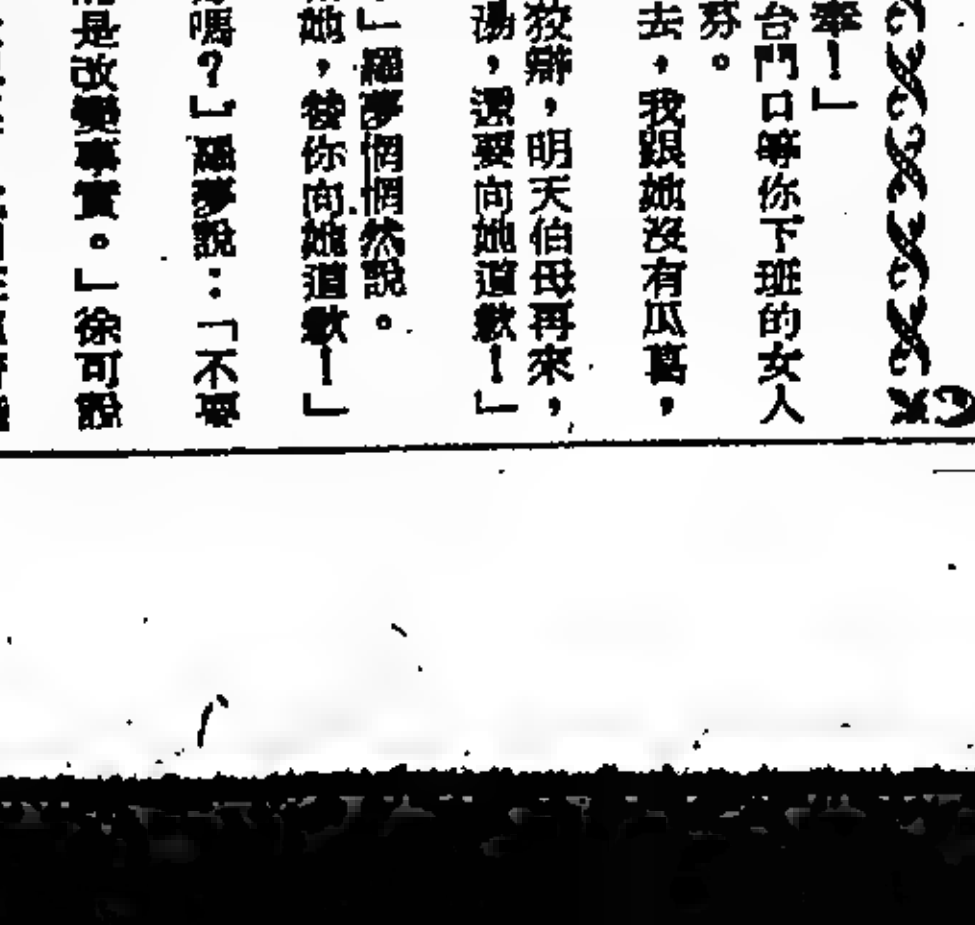 奉！」
台門口等你下班的女人
芬。
去，我跟她沒有瓜葛，
狡辯，明天伯母再來，
湯，還要向她道歉！」
」羅夢惘惘然說。
她，替你向她道歉！」
嗎？」羅夢說：「不要
是改變事實。」徐可說